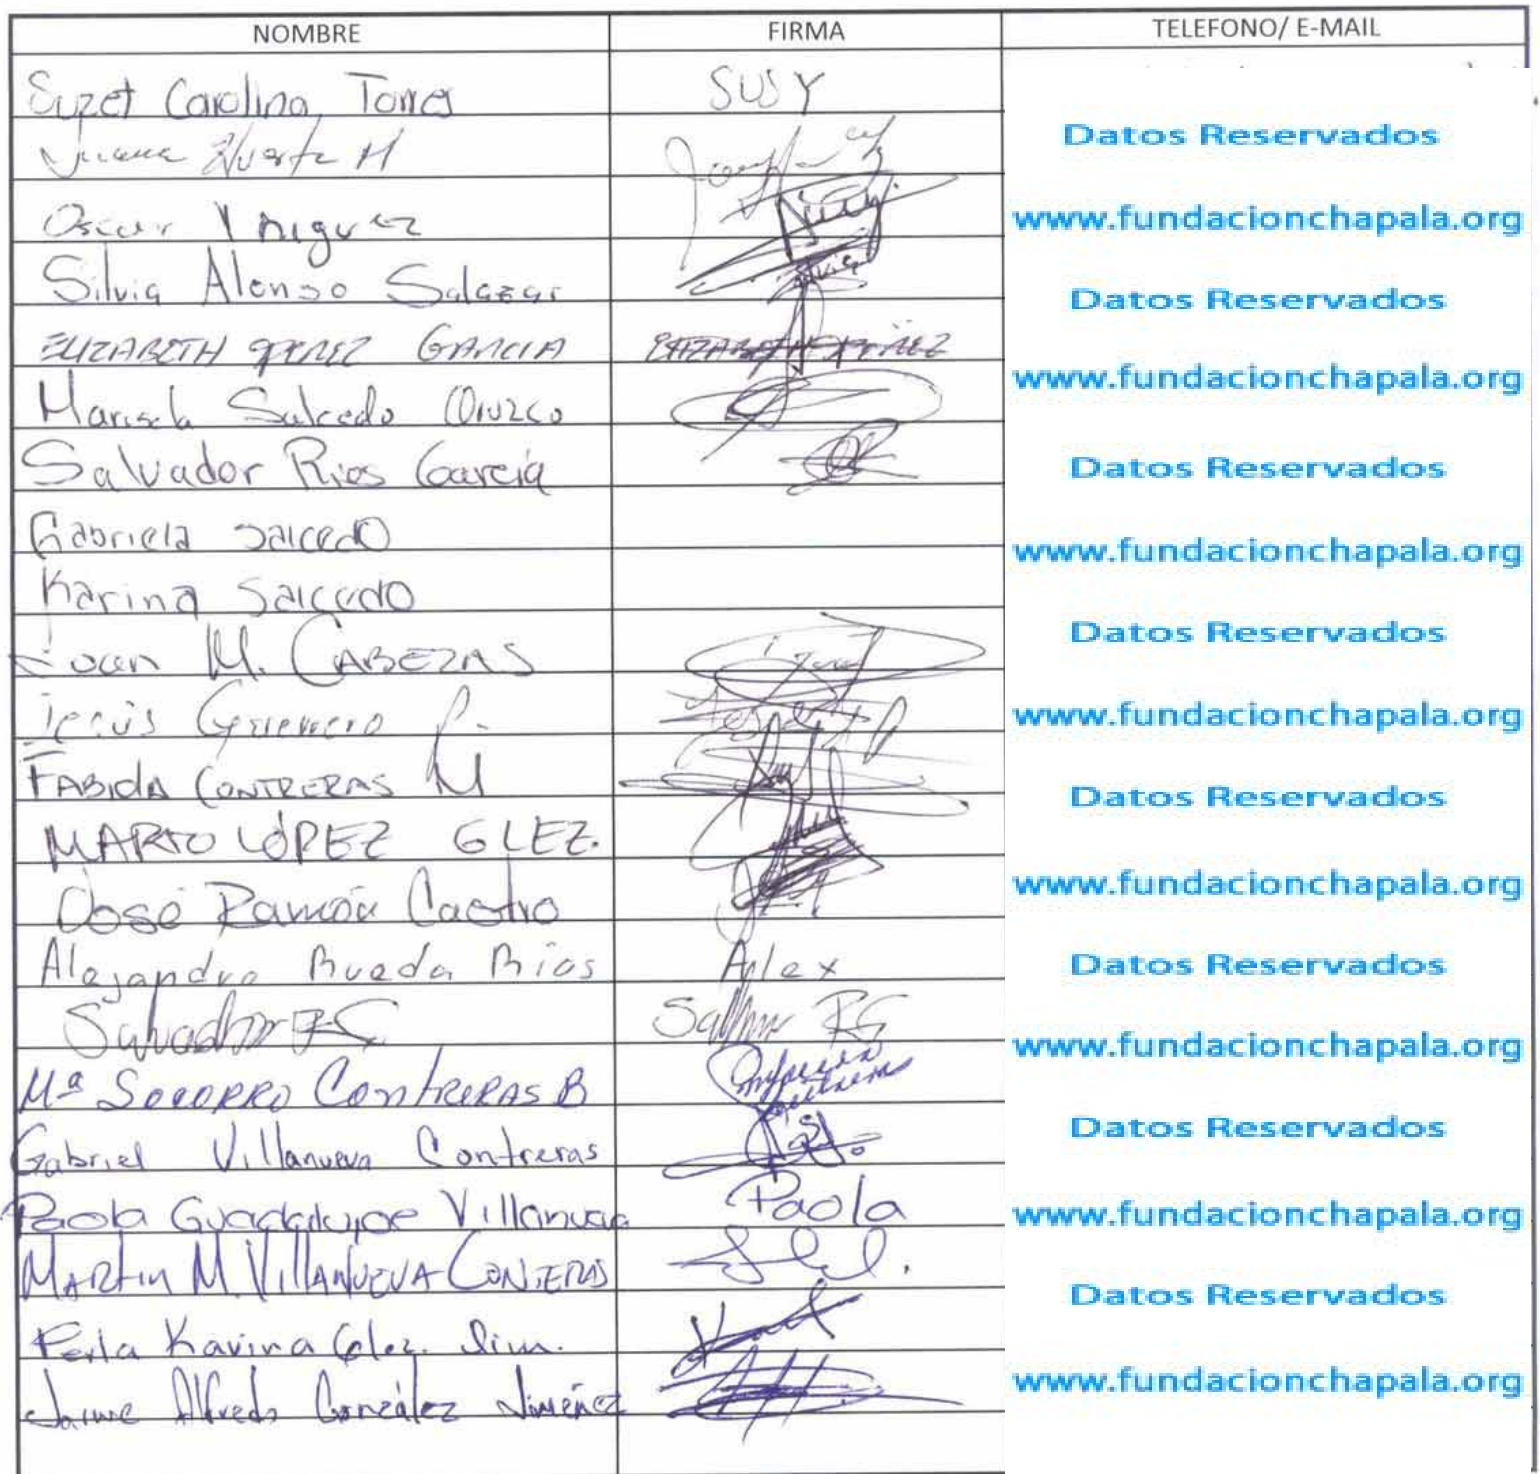 NOMBRE FIRMA TELEFONO/ E-MAIL
Suzet Carolina Torres SUSY
Juana Huerta M
Datos Reservados
Oscar Yñiguez
www.fundacionchapala.org
Silvia Alonso Salazar
Datos Reservados
ELIZABETH GARCIA ELIZABETH
www.fundacionchapala.org
Marisela Salcedo Orozco
Salvador Rios García
Datos Reservados
Gabriela Salcedo
www.fundacionchapala.org
Karina Salcedo
Datos Reservados
Juan M. CABEZAS
Jesús Guerrero
www.fundacionchapala.org
FABIOLA CONTRERAS M
Datos Reservados
MARIO LÓPEZ GLEZ.
www.fundacionchapala.org
José Ramón Castro
Alejandro Rueda Rios Alex
Datos Reservados
Salvador RG
www.fundacionchapala.org
Mª SOCORRO CONTRERAS B
Gabriel Villanueva Contreras
Datos Reservados
Paola Guadalupe Villanueva Paola
www.fundacionchapala.org
MARTIN M. VILLANUEVA CONTERAS
Datos Reservados
Perla Karina Glez. Jim.
www.fundacionchapala.org
Jaime Alfredo González Jiménez